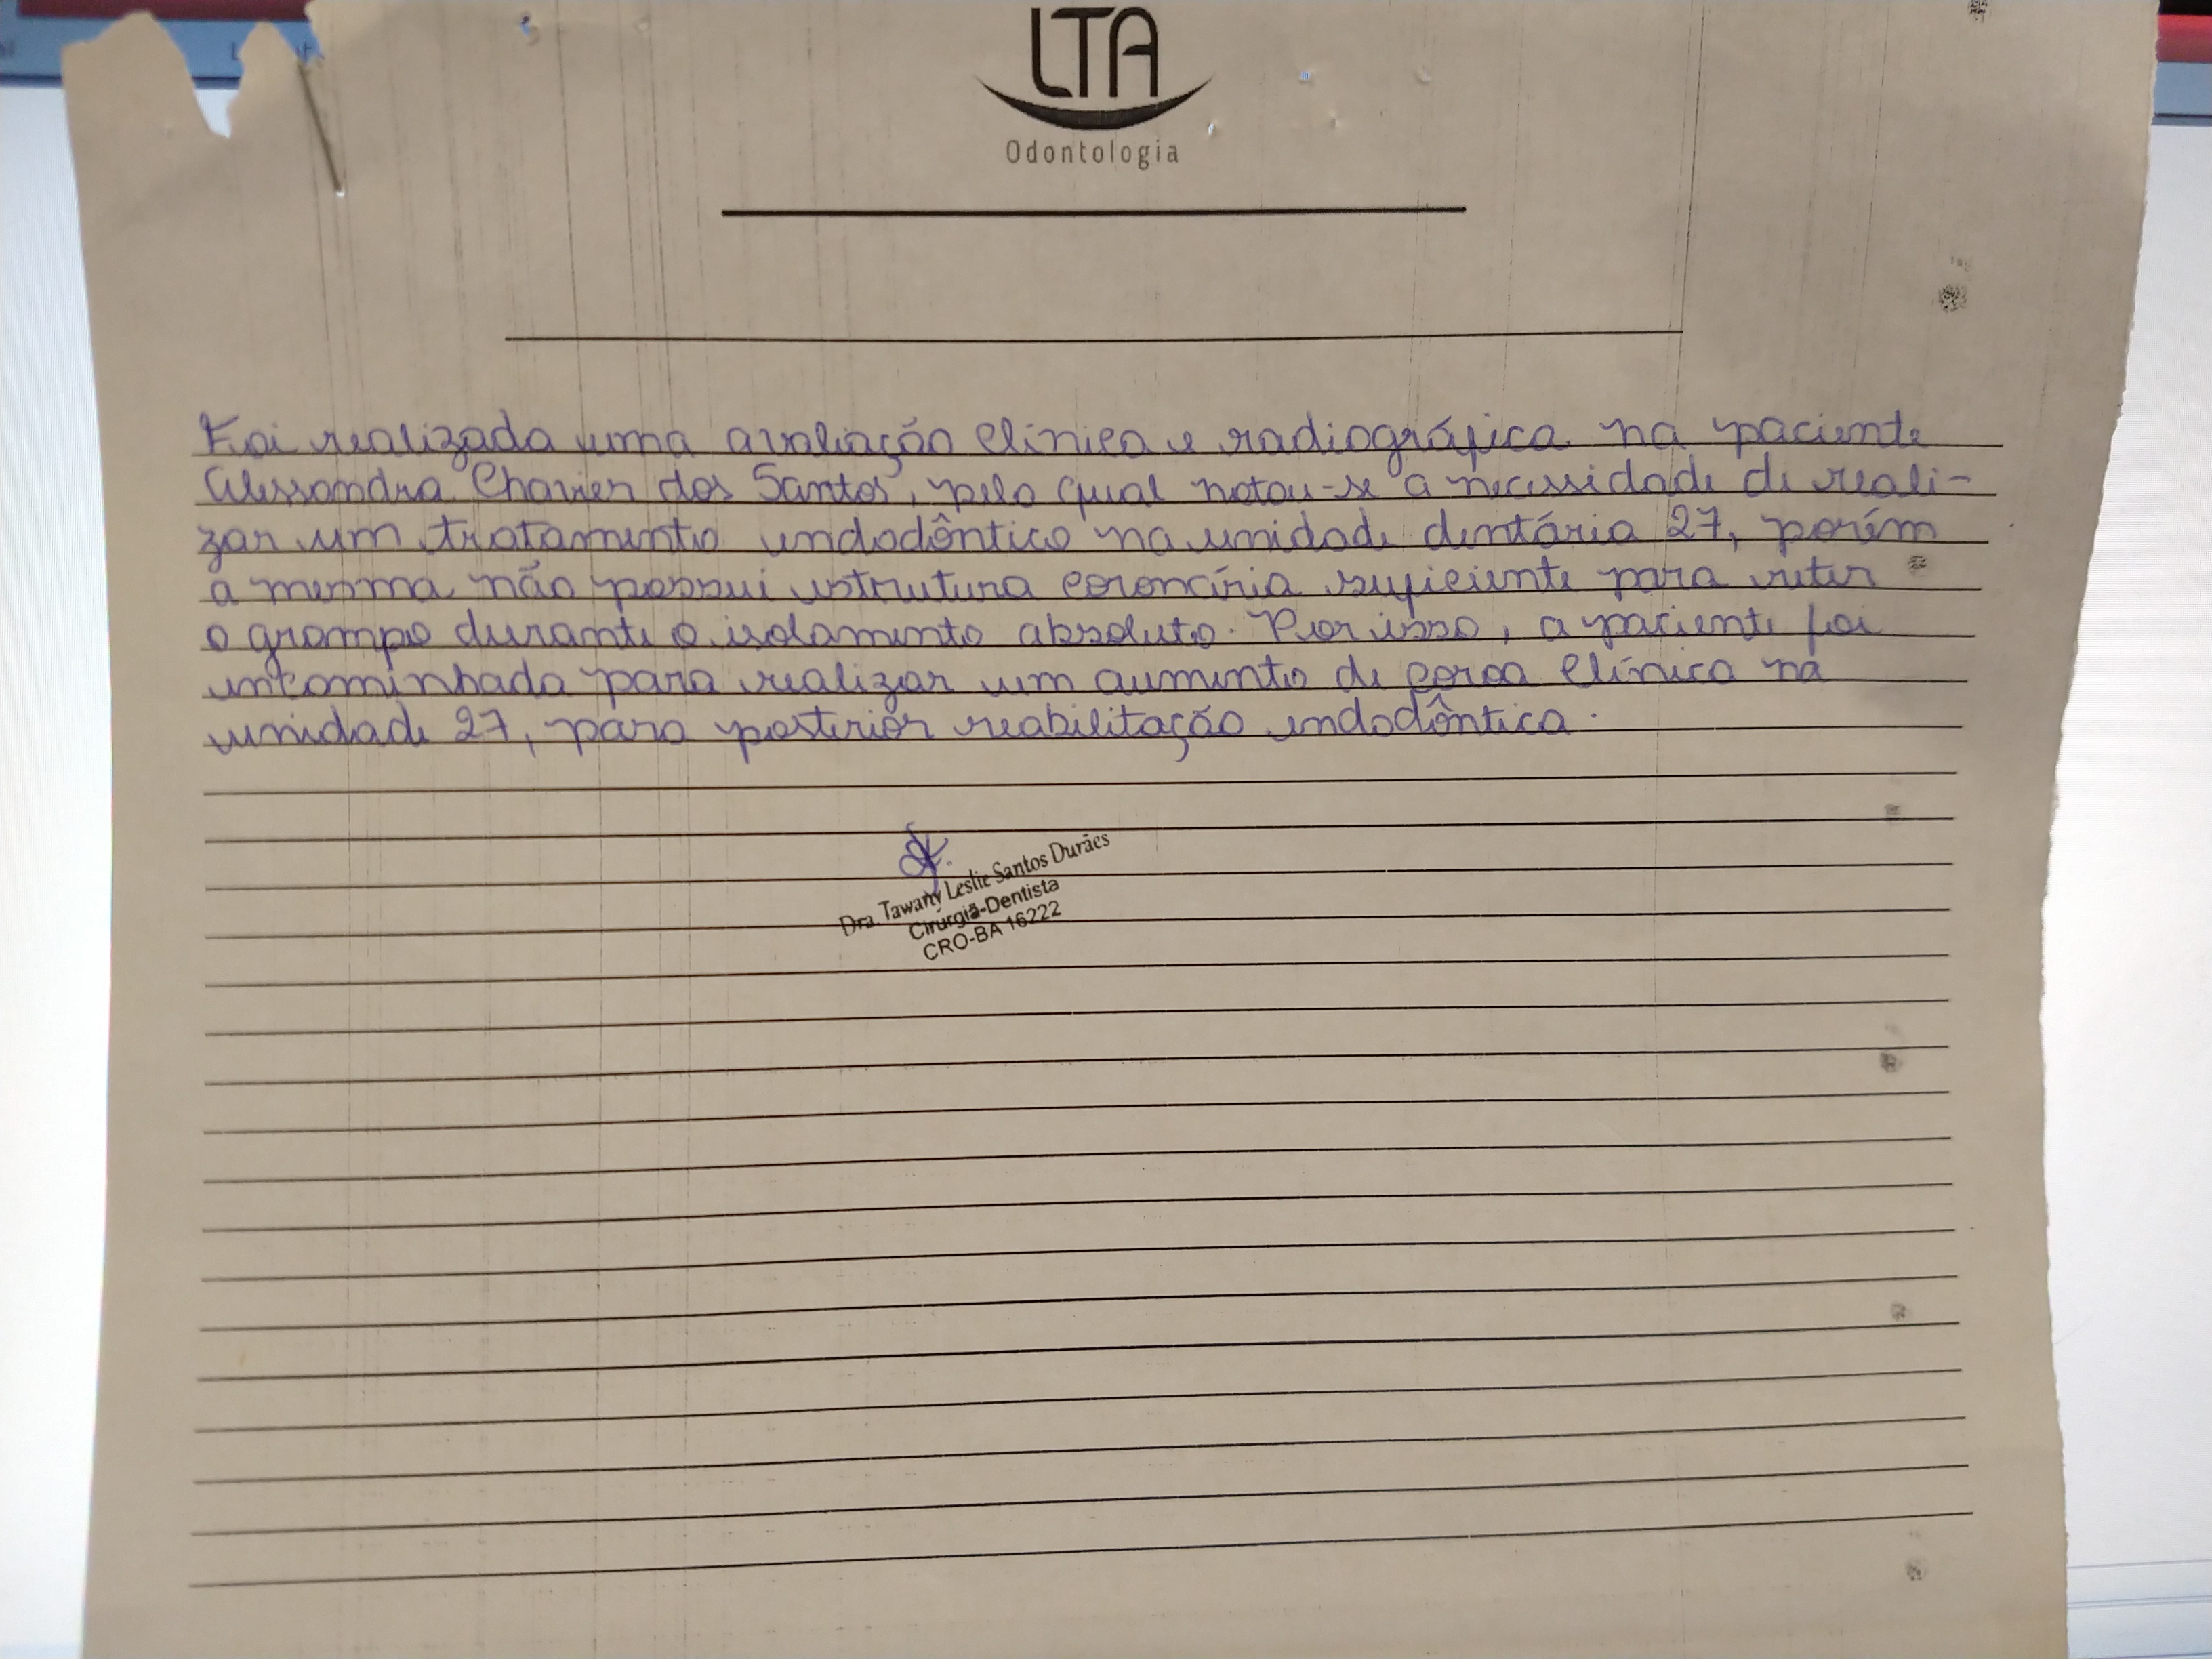 LTA
Odontologia
Foi realizada uma avaliação clínica e radiográfica na paciente
Alessandra Chavier dos Santos, pelo qual notou-se a necessidade de reali-
zar um tratamento endodôntico na unidade dentária 27, porém
a mesma não possui estrutura coronária suficiente para reter
o grampo durante o isolamento absoluto. Por isso, a paciente foi
encaminhada para realizar um aumento de coroa clínica na
unidade 27, para posterior reabilitação endodôntica.
Dra. Tawany Leslie Santos Durães
Cirurgiã-Dentista
CRO-BA 16222